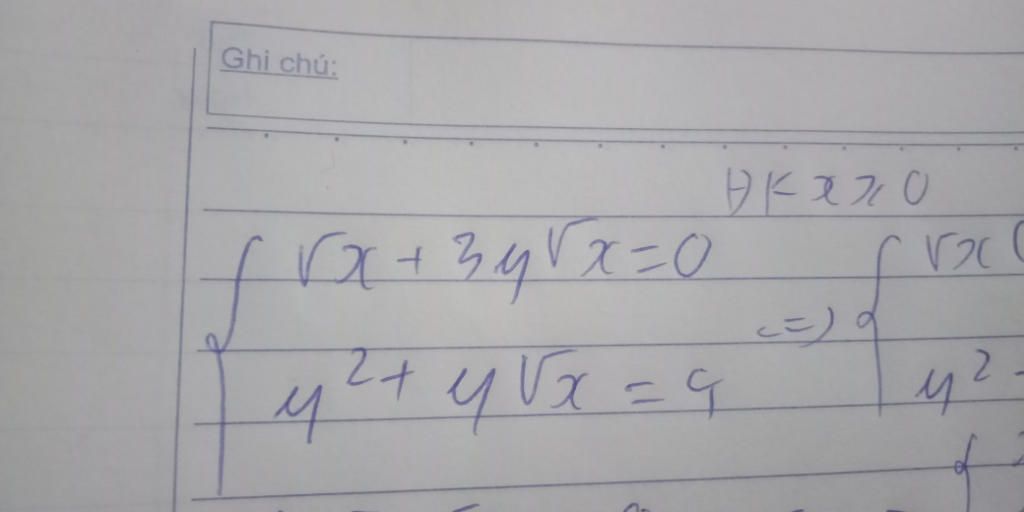 Ghi chú:
ĐK x ≥ 0
√x + 3y√x = 0
<=>
√x (
y² + y√x = 4
y² -